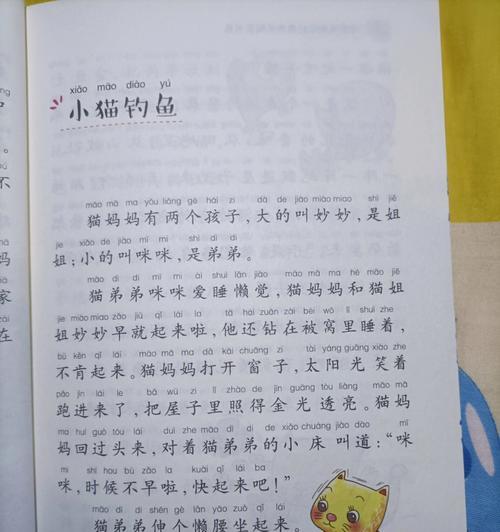 xiǎo māo diào yú
小猫钓鱼
māo mā ma yǒu liǎng gè hái zi dà de jiào miào miao shì jiě
猫妈妈有两个孩子，大的叫妙妙，是姐
jie xiǎo de jiào mī mi shì dì di
姐；小的叫咪咪，是弟弟。
māo dì di mī mi ài shuì lǎn jiào māo mā ma hé māo jiě
猫弟弟咪咪爱睡懒觉，猫妈妈和猫姐
jie miào miao zǎo jiù qǐ lái la tā hái zuān zài bèi wō lǐ shuì zhe
姐妙妙早就起来啦，他还钻在被窝里睡着，
bù kěn qǐ lái māo mā ma dǎ kāi chuāng zi tài yáng guāng xiào zhe
不肯起来。猫妈妈打开窗子，太阳光笑着
pǎo jìn lái le bǎ wū zi lǐ zhào de jīn guāng tòu liàng māo mā
跑进来了，把屋子里照得金光透亮。猫妈
ma huí guò tóu lái duì zhe māo dì di de xiǎo chuáng jiào dào mī
妈回过头来，对着猫弟弟的小床叫道：“咪
mi shí hou bù zǎo la kuài qǐ lái ba
咪，时候不早啦，快起来吧！”
māo dì di shēn gè lǎn yāo zuò qǐ lái
猫弟弟伸个懒腰坐起来。
和
。
不
妈
家
在